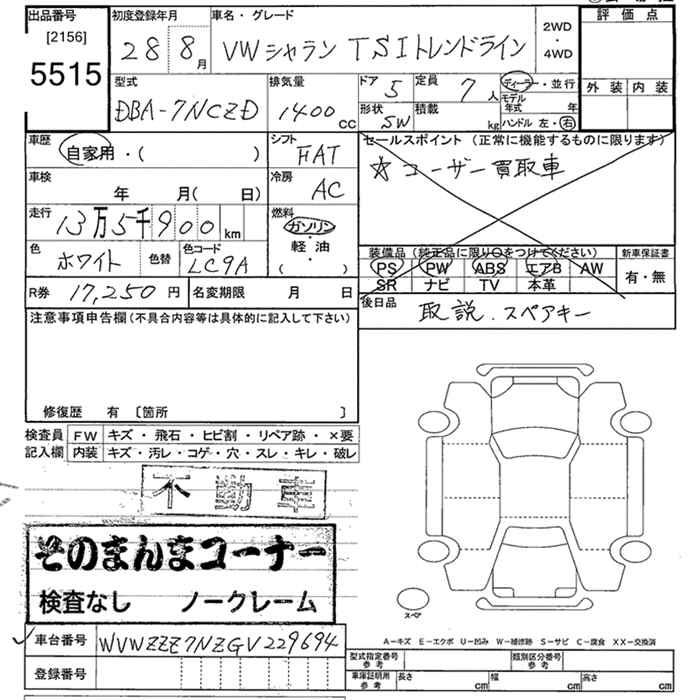 出品番号 初度登録年月 車名・グレード 2WD・4WD 評価点
[2156]
5515 28 8月 VWシャラン TSIトレンドライン
外装 内装
型式 排気量 ドア 5 定員 7人 ディーラー・並行
DBA-7NCZD 1400cc モデル年式 年
形状 SW 積載 kg ハンドル 左・右
車歴 シフト セールスポイント (正常に機能するものに限ります)
自家用・( ) FAT ☆ユーザー買取車
車検 年 月( 日) 冷房 AC
走行 13万5千900km 燃料 ガソリン・軽油( )
色 ホワイト 色替 色コード LC9A
装備品(純正品に限り○をつけてください) 新車保証書
PS PW ABS エアB AW 有・無
SR ナビ TV 本革
R券 17,250円 名変期限 月 日
後日品 取説.スペアキー
注意事項申告欄(不具合内容等は具体的に記入して下さい)
修復歴 有 〔箇所 〕
検査員 FW キズ・飛石・ヒビ割・リペア跡・×要
記入欄 内装 キズ・汚レ・コゲ・穴・スレ・キレ・破レ
不動車
そのまんまコーナー
検査なし ノークレーム
スペア
車台番号 WVWZZZ7NZGV229694
登録番号
A−キズ E−エクボ U−凹み W−補修跡 S−サビ C−腐食 XX−交換済
型式指定番号 参考 類別区分番号 参考
車庫証明用 参考 長さ cm 幅 cm 高さ cm